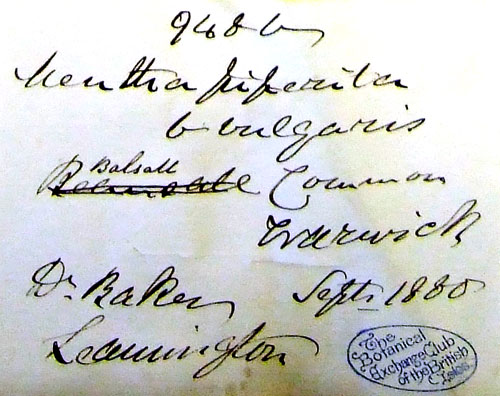 968 b
Mentha piperita
b vulgaris
Balsall
Common
Warwick
Dr Baker Sept 1880
Leamington
The
Botanical
Exchange Club
of the British
Isles